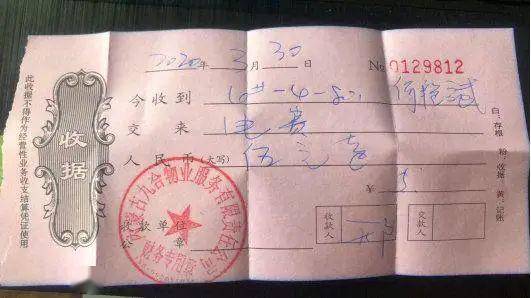 2020年3月30日 No 0129812
今收到 10#-4-
交来 电费
人民币(大写) 伍元
¥ 5
收款单位
公章
收款人
交款人
收据
此收据不得作为经营性业务收支结算凭证使用
白:存根 粉:收据 黄:记账
内蒙古九合物业服务有限责任公司
财务专用章